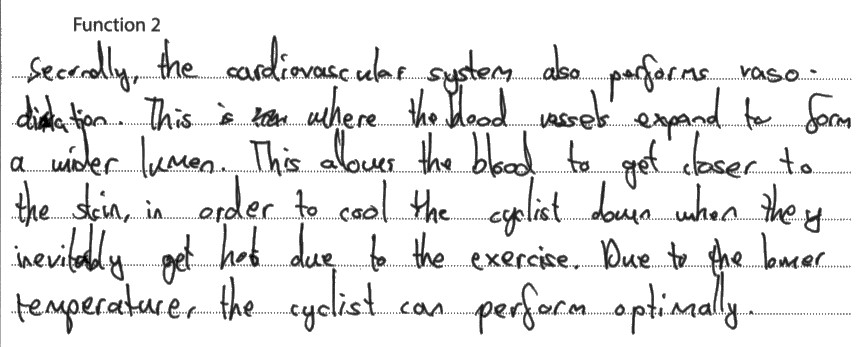 Function 2
Secondly, the cardiovascular system also performs vaso-
dilation. This is where the blood vessels expand to form
a wider lumen. This allows the blood to get closer to
the skin, in order to cool the cyclist down when they
inevitably get hot due to the exercise. Due to the lower
temperature, the cyclist can perform optimally.